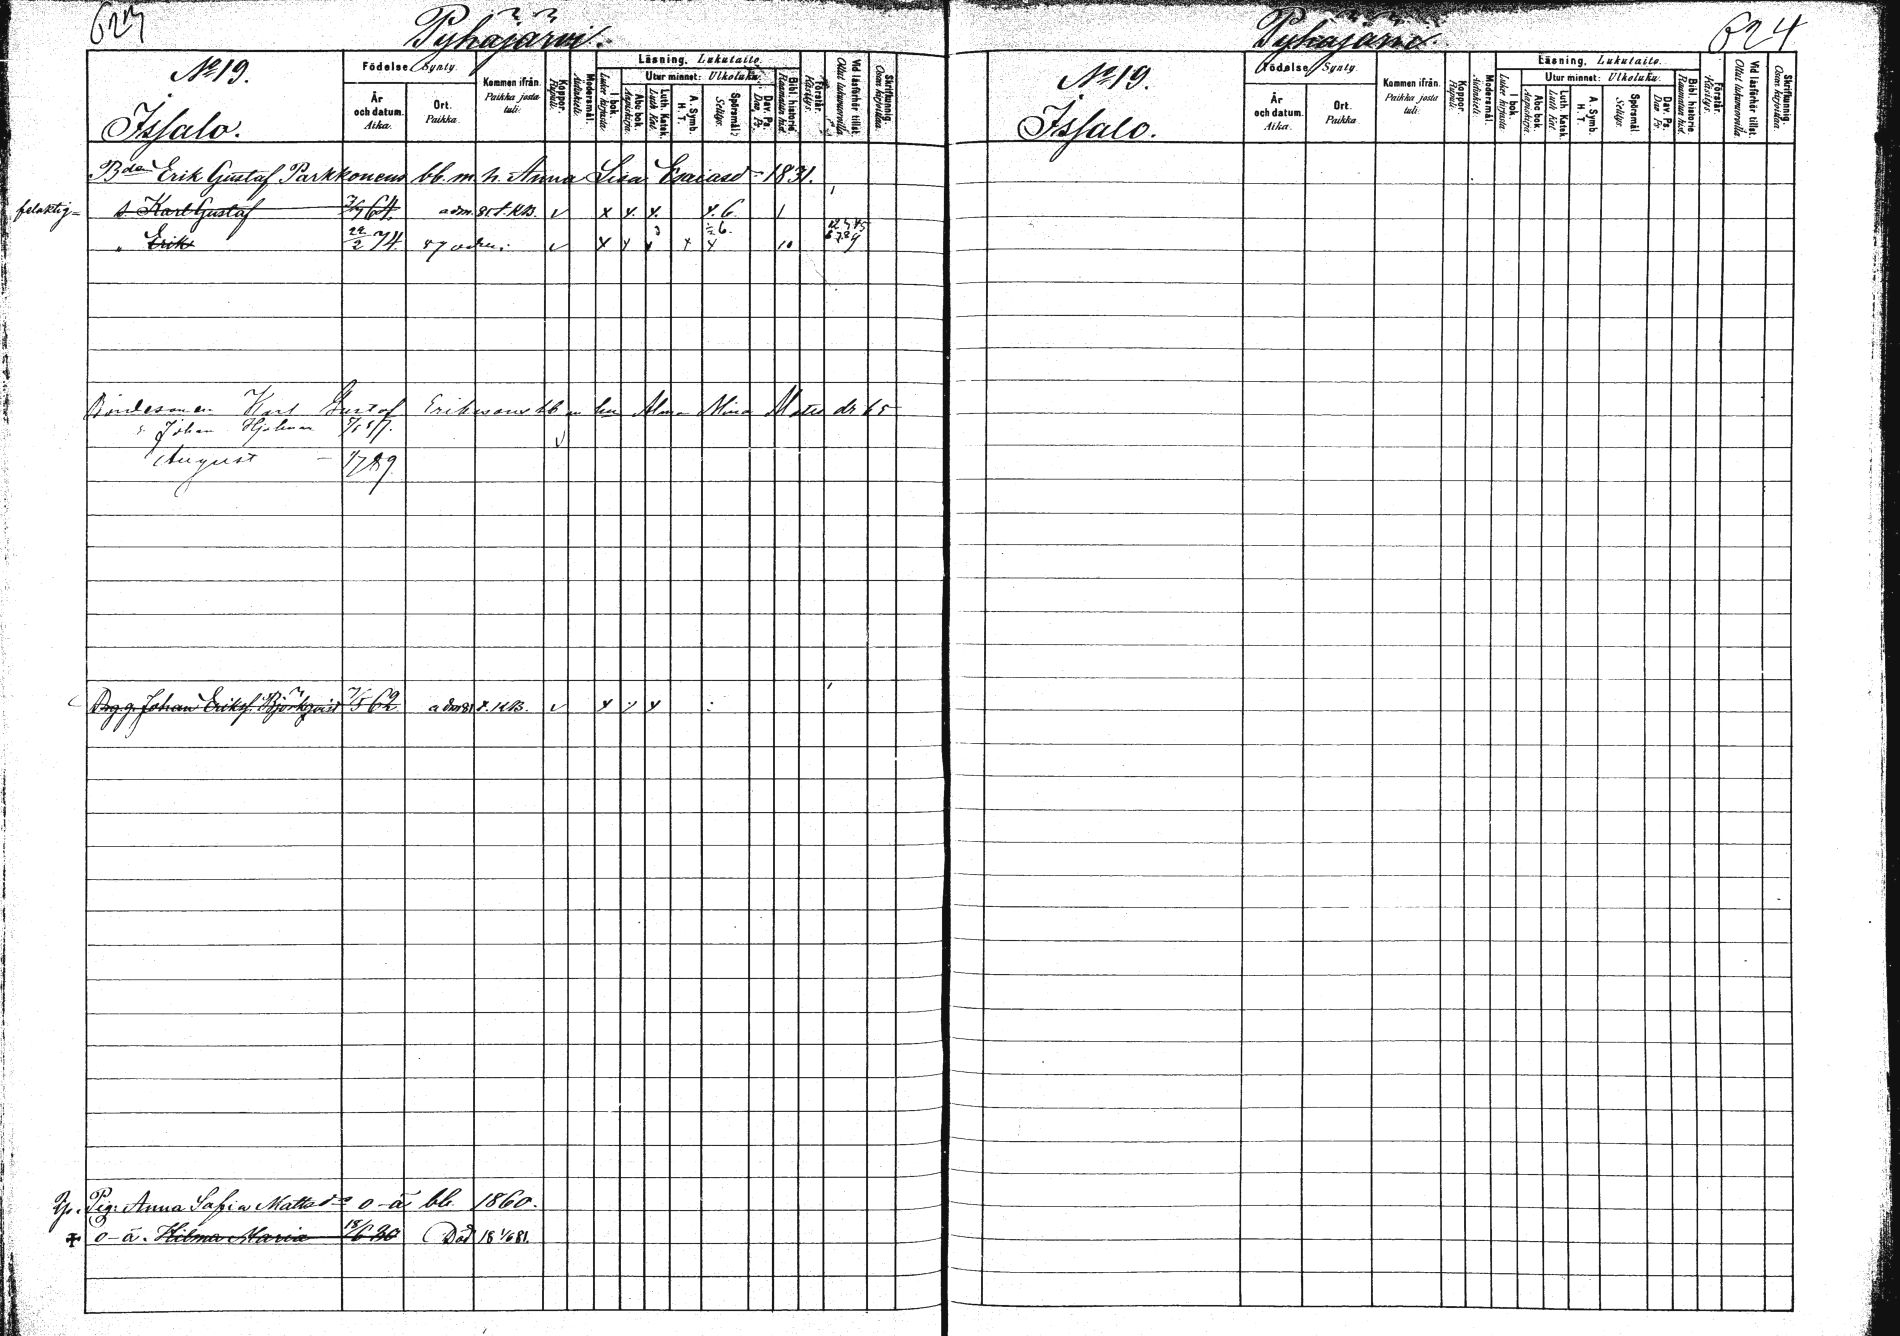 623
Pyhäjärvi.
№ 19.
Issalo.
Födelse Synty.
År och datum. Aika.
Ort. Paikka.
Kommen ifrån. Paikka josta tuli.
Koppor. Rupuli.
Modersmål. Äidinkieli.
Läsning. Lukutaito.
I bok. Lukee kirjasta.
Utur minnet: Ulkoluku.
Abc bok. Aapiskirja.
Luth. Katek. Luth. Kat.
A. Symb. H. T.
Spörsmål. Selitys.
Dav. Ps. Dav. Ps.
Bibl. historie. Raamatun hist.
Förstår. Käsitys.
Vid läsförhör tillst. Ollut lukuvuorolla.
Skrifkunnig. Osaa kirjoittaa.
Bden Erik Gustaf Parkkonens bb. m. h. Anna Lisa Esaiasd – 1831.
felaktig s. Karl Gustaf 64. adm. 85 f. KB. v x x. x. x. 6. 1
" Erik 22/2 74. 87 adm. v x x x x x 10
Bondesonen Karl Gustaf Erikssons bb m hu Alma Mina Mats dr 65
s. Johan Hjalmar 87. v
August – 1/7 89.
Johan Eriks. Björkqvist 7/5 62 adm 81 f. KB. v x x
Pig. Anna Sofia Mattsdr o-ä bb 1860.
o-ä. Hilma Maria 18/6 80 Död 18 1/6 81.
624
Pyhäjärvi.
№ 19.
Issalo.
Födelse Synty.
År och datum. Aika.
Ort. Paikka.
Kommen ifrån. Paikka josta tuli.
Koppor. Rupuli.
Modersmål. Äidinkieli.
Läsning. Lukutaito.
I bok. Lukee kirjasta.
Utur minnet: Ulkoluku.
Abc bok. Aapiskirja.
Luth. Katek. Luth. Kat.
A. Symb. H. T.
Spörsmål. Selitys.
Dav. Ps. Dav. Ps.
Bibl. historie. Raamatun hist.
Förstår. Käsitys.
Vid läsförhör tillst. Ollut lukuvuorolla.
Skrifkunnig. Osaa kirjoittaa.